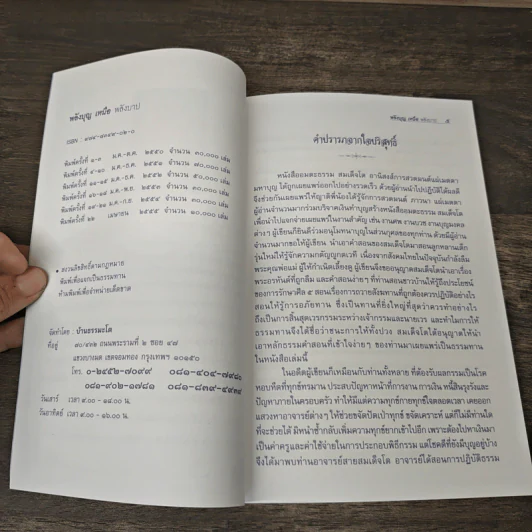 พลังบุญ เหนือ พลังบาป
ISBN :
พิมพ์ครั้งที่ ๑-๓ ม.ค.-ต.ค. ๒๕๕๐ จำนวน ๓๐,๐๐๐ เล่ม
พิมพ์ครั้งที่ ๔-๑๐ ม.ค.-ธ.ค. ๒๕๕๑ จำนวน ๗๐,๐๐๐ เล่ม
พิมพ์ครั้งที่
พิมพ์ครั้งที่
พิมพ์ครั้งที่
พิมพ์ครั้งที่ ๒๒ เมษายน ๒๕๕๕ จำนวน ๑๐,๐๐๐ เล่ม
สงวนลิขสิทธิ์ตามกฎหมาย
พิมพ์เพื่อแจกเป็นธรรมทาน
ห้ามพิมพ์เพื่อจำหน่ายเด็ดขาด
จัดทำโดย : บ้านธรรมะโต
ที่อยู่ ๓๐/๔๒ ถนนพระรามที่ ๒ ซอย ๔๗
แขวงบางมด เขตจอมทอง กรุงเทพฯ ๑๐๑๕๐
โทร.
วันเสาร์ เวลา ๙.๐๐ - ๑๘.๐๐ น.
วันอาทิตย์ เวลา ๙.๐๐ - ๑๖.๐๐ น.
พลังบุญ เหนือ พลังบาป
คำปรารภจากใจบริสุทธิ์
หนังสืออมตะธรรม สมเด็จโต อานิสงส์การสวดมนต์แผ่เมตตา
มหาบุญ ได้ถูกเผยแพร่ออกไปอย่างรวดเร็ว ด้วยผู้อ่านนำไปปฏิบัติได้ผลดี
จึงช่วยกันเผยแพร่ให้ญาติพี่น้องได้รู้จักการสวดมนต์ ภาวนา แผ่เมตตา
ผู้อ่านจำนวนมากร่วมบริจาคเงินทำบุญสร้างหนังสืออมตะธรรม สมเด็จโต
เพื่อนำไปแจกจ่ายเผยแพร่ในงานสำคัญ เช่น งานศพ งานบวช งานบุญมงคล
ต่างๆ ผู้เขียนก็ยินดีร่วมอนุโมทนาบุญในส่วนกุศลของทุกท่าน ด้วยมีผู้อ่าน
จำนวนมากขอให้ผู้เขียน นำเอาคำสอนของสมเด็จโตมาสอนลูกหลานเด็ก
รุ่นใหม่ให้รู้จักความกตัญญูกตเวที เนื่องจากสังคมไทยในปัจจุบันกำลังลืม
พระคุณพ่อแม่ ผู้ให้กำเนิดเลี้ยงดู ผู้เขียนจึงขออนุญาตสมเด็จโตนำเอาเรื่อง
พระอรหันต์ที่ถูกลืม และคำสอนง่าย ๆ ที่ท่านสอนชาวบ้านให้รู้ถึงประโยชน์
ของการรักษาศีล ๕ สอนเรื่องการถวายสังฆทานที่ถูกต้องควรปฏิบัติอย่างไร
สอนให้รู้การอภัยทาน ซึ่งเป็นทานที่ยิ่งใหญ่ที่สุดว่าควรทำอย่างไร
ถึงเป็นการสิ้นสุดเวรกรรมระหว่างเจ้ากรรมและนายเวร และทำไมการให้
ธรรมทานจึงได้ชื่อว่าชนะการให้ทั้งปวง สมเด็จโตได้อนุญาตให้นำ
เอาหลักธรรมคำสอนที่เข้าใจง่ายๆ ของท่านมาเผยแพร่เป็นธรรมทาน
ในหนังสือเล่มนี้
ในอดีตผู้เขียนก็เหมือนกับท่านทั้งหลาย ที่ต้องรับผลกรรมเป็นโรค
หอบหืดที่ทุกข์ทรมาน ประสบปัญหาหน้าที่การงาน การเงิน หนี้สินรุงรังและ
ปัญหาภายในครอบครัว ทำให้มีแต่ความทุกข์กายทุกข์ใจตลอดเวลา เคยออก
แสวงหาอาจารย์ต่างๆ ให้ช่วยขจัดปัดเป่าทุกข์ ขจัดเคราะห์ แต่ก็ไม่มีท่านใด
ที่จะช่วยได้ มิหนำซ้ำกลับเพิ่มความทุกข์ยากเข้าไปอีก เพราะต้องไปหาเงินมา
เป็นค่าครูและค่าใช้จ่ายในการประกอบพิธีกรรม แต่โชคดีที่ยังมีบุญอยู่บ้าง
จึงได้มาพบท่านอาจารย์สายสมเด็จโต อาจารย์ได้สอนการปฏิบัติธรรม